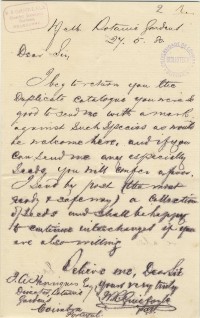 Melb Botanic Gardens
27. 5. 80
Dear Sir,
I beg to return you the
duplicate catalogue you were so
good to send me with a mark
against such species as would
be welcome here, and if you
can send me any especially
seeds, you will confer a favor.
I send by post (the most
ready & safe way) a collection
of seeds and shall be happy
to continue interchanges if you
are also willing
Believe me, Dear Sir
Yours very truly
J. A. Henriques Esq
Director Botanic
Gardens
Coimbra
Portugal